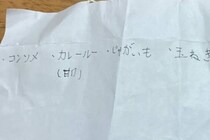 ・コンソメ ・カレールー ・じゃがいも ・玉ねぎ
(甘口)